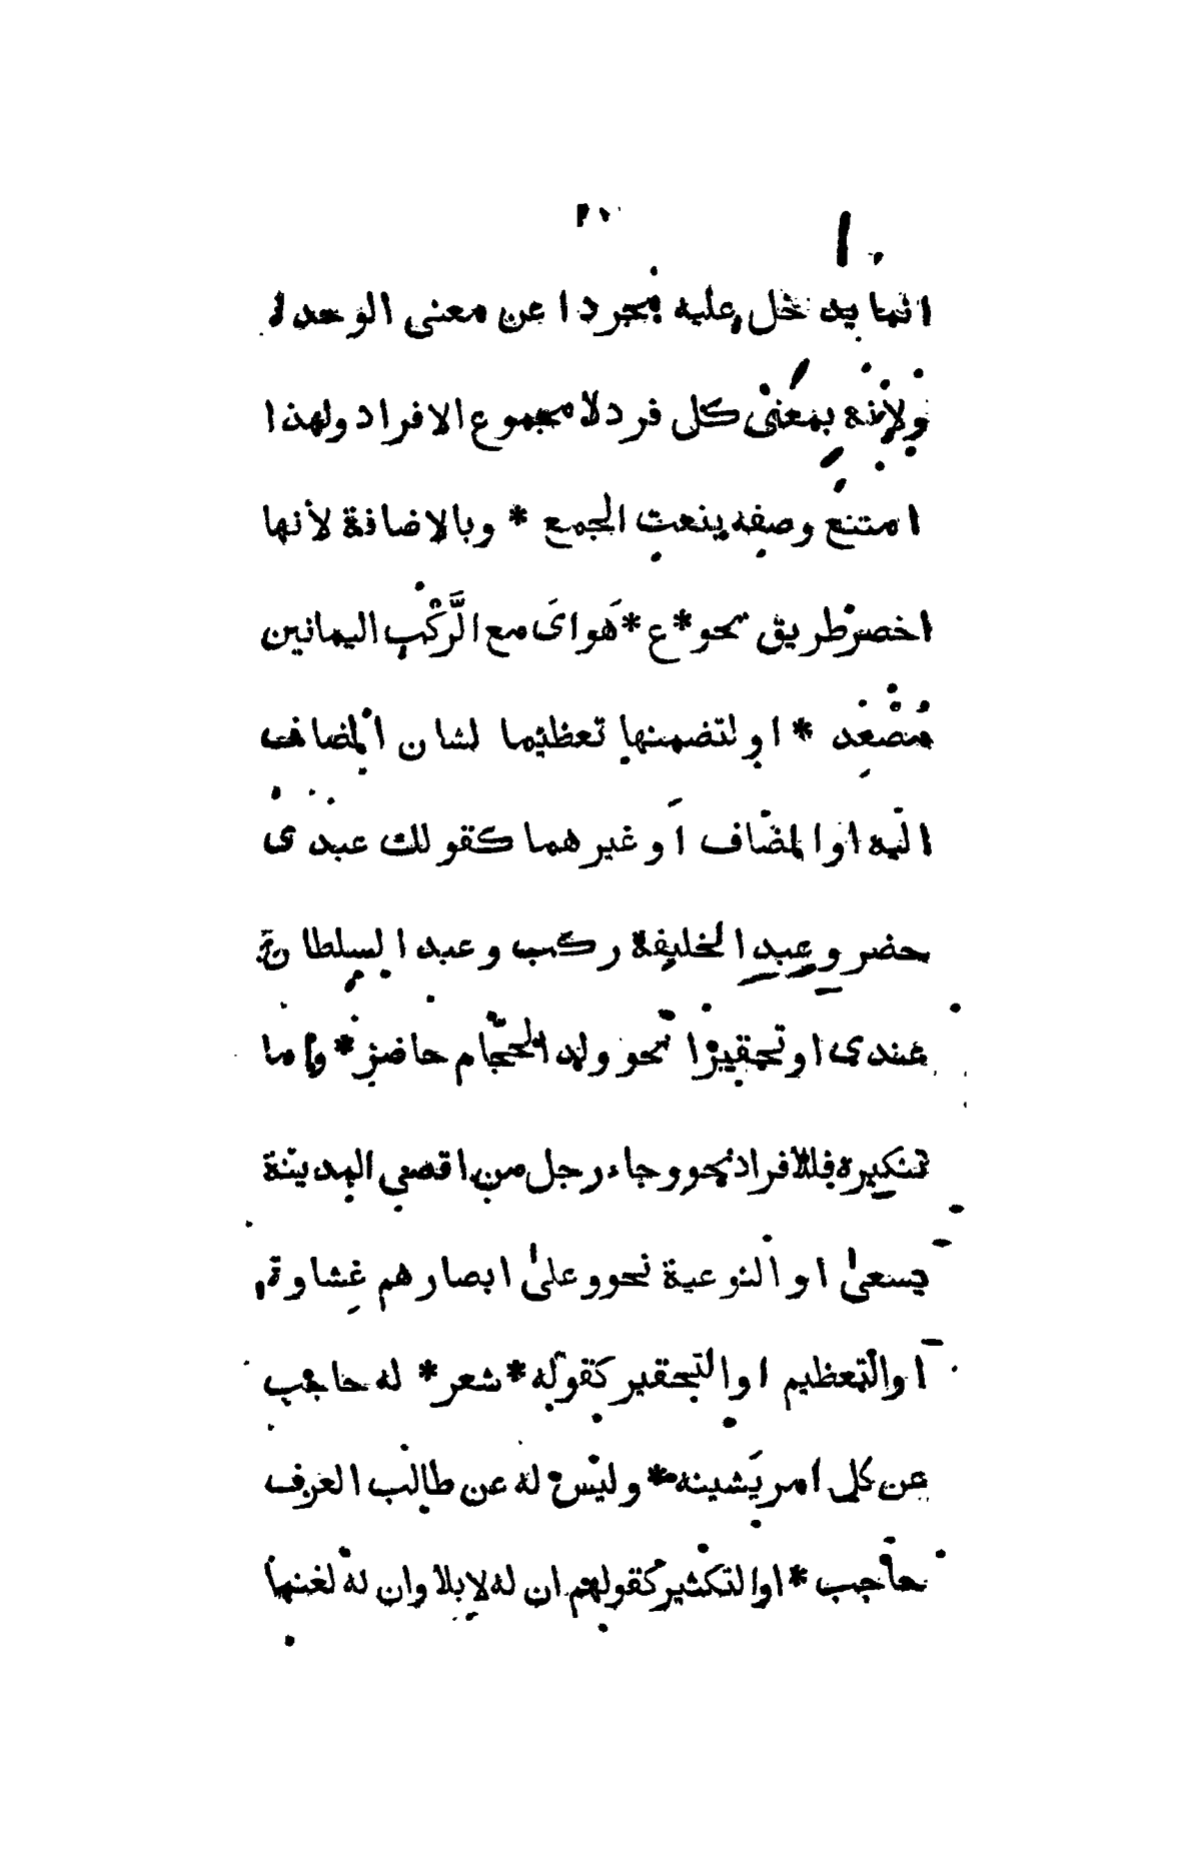 انما يدخل عليه مجردا عن معنى الوحدة
ولأنه بمعنى كل فرد لا مجموع الافراد ولهذا
امتنع وصفه بنعت الجمع * وبالاضافة لأنها
اخصر طريق نحو * ع * هَواىَ مع الرَّكْب اليمانين
مُصْعِد * او لتضمنها تعظيما لشان المضاف
اليه او المضاف اَو غيرهما كقولك عبدى
حضر وعبد الخليفة ركب وعبد السلطان
عندى او تحقيرا نحو ولد الحجّام حاضر * واما
تنكيره فللافراد نحو وجاء رجل من اقصى المدينة
يسعىٰ او النوعية نحو وعلىٰ ابصارهم غشاوة
او التعظيم او التحقير كقوله * شعر * له حاجب
عن كل امر يَشينه * وليس له عن طالب العرف
حاجب * او التكثير كقولهم ان له لابلا وان له لغنما